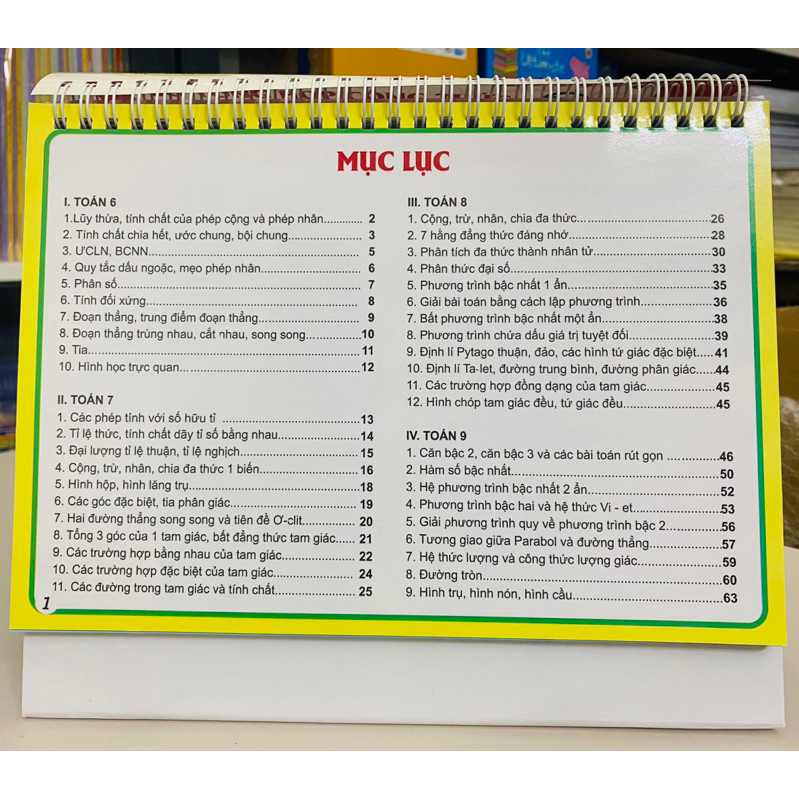 MỤC LỤC
I. TOÁN 6
1.Lũy thừa, tính chất của phép cộng và phép nhân............. 2
2. Tính chất chia hết, ước chung, bội chung................... 3
3. ƯCLN, BCNN............................................... 5
4. Quy tắc dấu ngoặc, mẹo phép nhân......................... 6
5. Phân số.................................................. 7
6. Tính đối xứng............................................ 8
7. Đoạn thẳng, trung điểm đoạn thẳng........................ 9
8. Đoạn thẳng trùng nhau, cắt nhau, song song...............10
9. Tia......................................................11
10. Hình học trực quan......................................12
II. TOÁN 7
1. Các phép tính với số hữu tỉ .............................13
2. Tỉ lệ thức, tính chất dãy tỉ số bằng nhau................14
3. Đại lượng tỉ lệ thuận, tỉ lệ nghịch......................15
4. Cộng, trừ, nhân, chia đa thức 1 biến.....................16
5. Hình hộp, hình lăng trụ..................................18
6. Các góc đặc biệt, tia phân giác..........................19
7. Hai đường thẳng song song và tiên đề Ơ-clit..............20
8. Tổng 3 góc của 1 tam giác, bất đẳng thức tam giác......21
9. Các trường hợp bằng nhau của tam giác....................22
10. Các trường hợp đặc biệt của tam giác....................24
11. Các đường trong tam giác và tính chất...................25
III. TOÁN 8
1. Cộng, trừ, nhân, chia đa thức............................26
2. 7 hằng đẳng thức đáng nhớ................................28
3. Phân tích đa thức thành nhân tử..........................30
4. Phân thức đại số.........................................33
5. Phương trình bậc nhất 1 ẩn...............................35
6. Giải bài toán bằng cách lập phương trình.................36
7. Bất phương trình bậc nhất một ẩn.........................38
8. Phương trình chứa dấu giá trị tuyệt đối..................39
9. Định lí Pytago thuận, đảo, các hình tứ giác đặc biệt.....41
10. Định lí Ta-let, đường trung bình, đường phân giác......44
11. Các trường hợp đồng dạng của tam giác...................45
12. Hình chóp tam giác đều, tứ giác đều.....................45
IV. TOÁN 9
1. Căn bậc 2, căn bậc 3 và các bài toán rút gọn ............46
2. Hàm số bậc nhất..........................................50
3. Hệ phương trình bậc nhất 2 ẩn............................52
4. Phương trình bậc hai và hệ thức Vi - et..................53
5. Giải phương trình quy về phương trình bậc 2..............56
6. Tương giao giữa Parabol và đường thẳng...................57
7. Hệ thức lượng và công thức lượng giác....................59
8. Đường tròn...............................................60
9. Hình trụ, hình nón, hình cầu.............................63
1